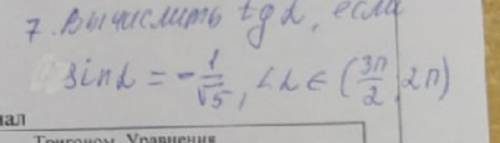 7. Вычислить tg α, если
sin α = -1/√5, ∠α ∈ (3π/2, 2π)
нал
Тригоном. Уравнения